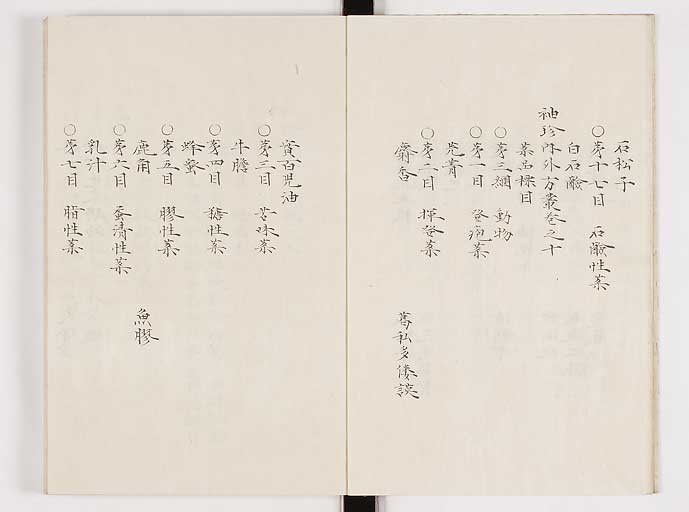 石松子
○第十七目　石鹸性薬
白石鹸
袖珍内外方叢巻之十
薬品標目
○第三綱　動物
○第一目　発泡薬
芫菁
○第二目　揮発薬
麝香　葛私多僂謨
實百児油
○第三目　苦味薬
牛膽
○第四目　糖性薬
蜂蜜
○第五目　膠性薬
鹿角　魚膠
○第六目　蛋清性薬
乳汁
○第七目　脂性薬